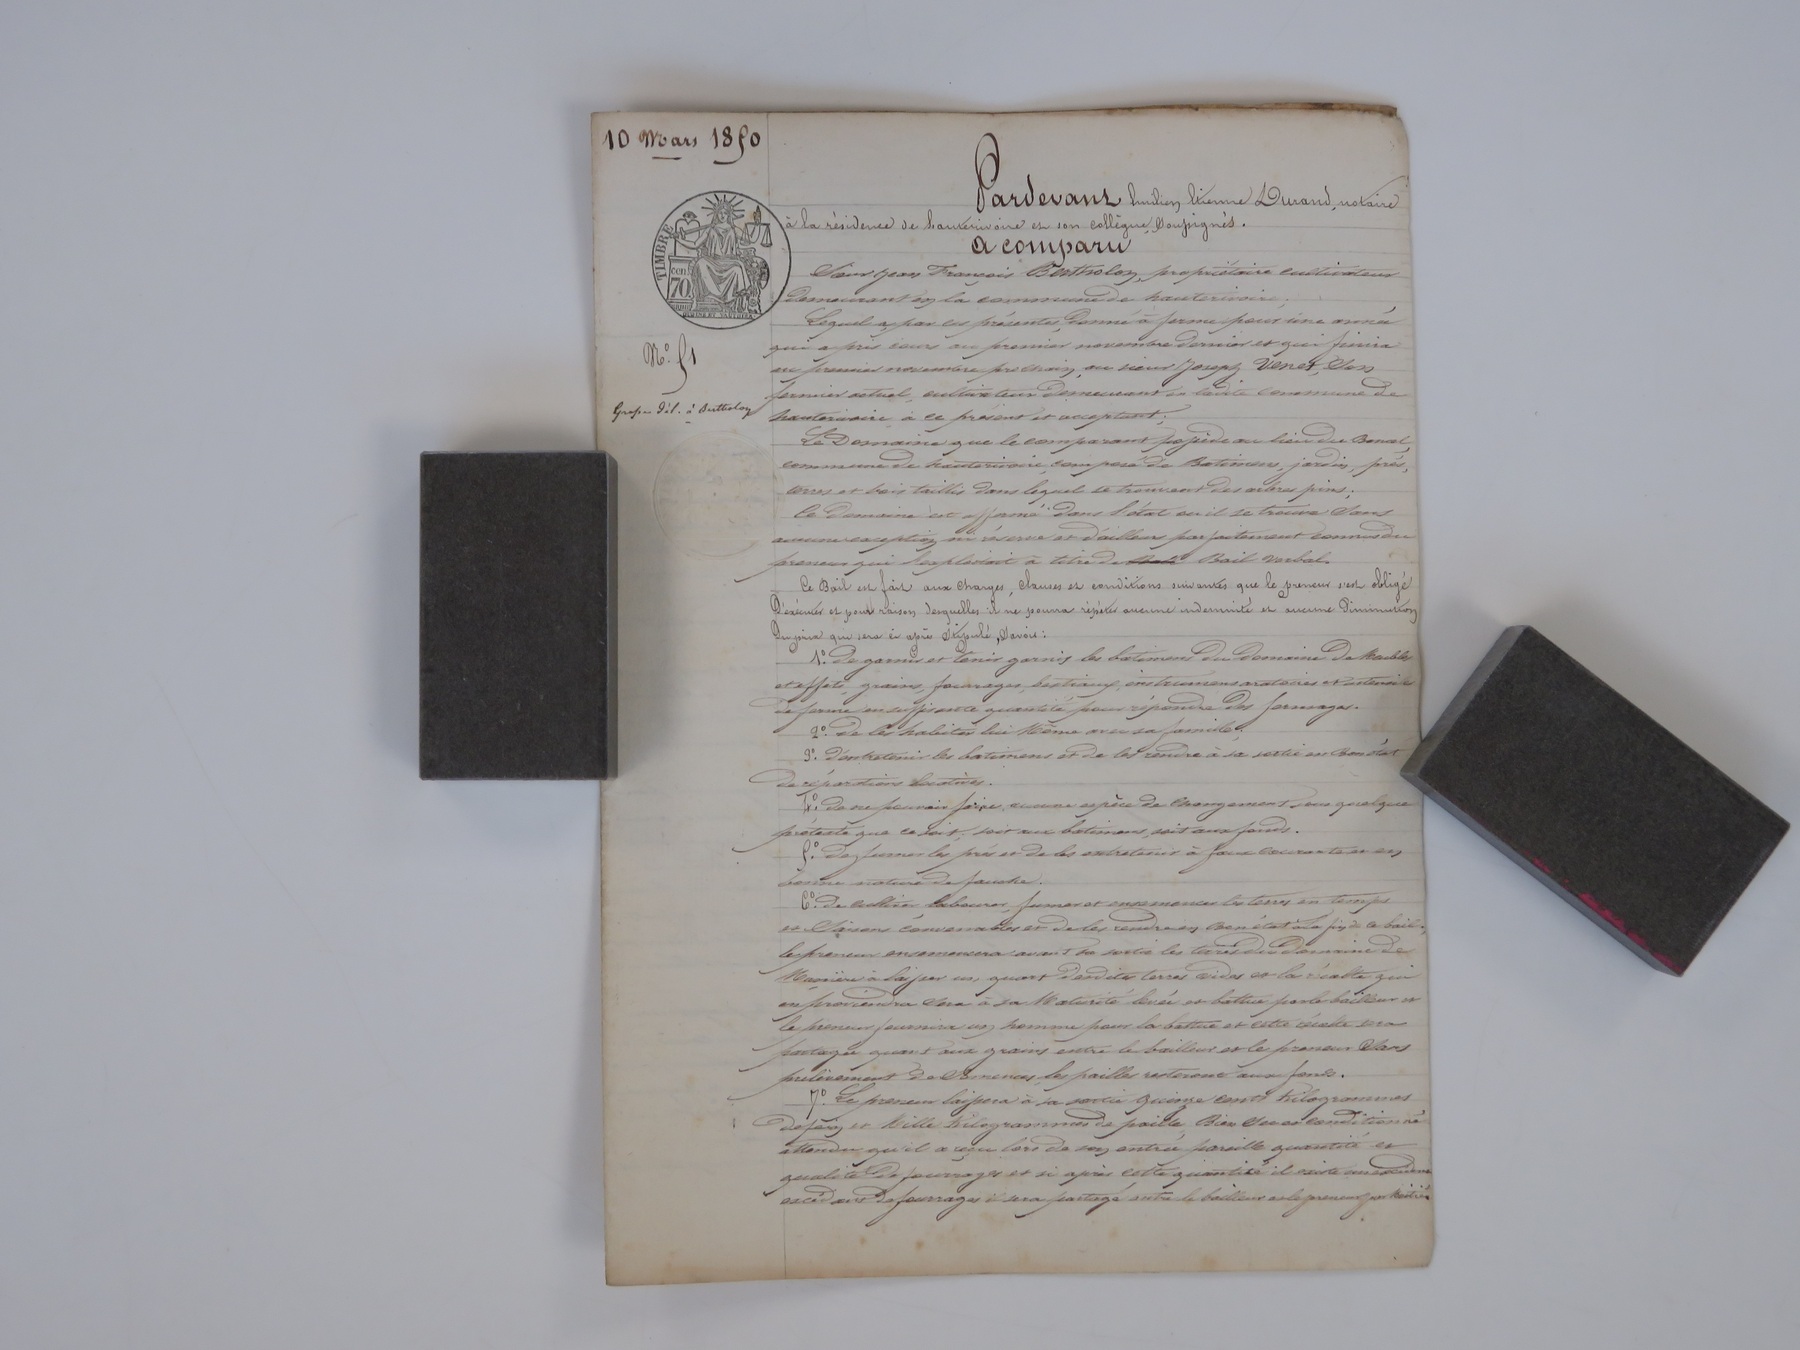 10 Mars 1850
TIMBRE
cen
70
N.º 51
Grosse dél. à Bertholon
Pardevant Emilien Etienne Durand, notaire
à la résidence de hauterivoire et son collègue, Soussignés.
a comparu
Sieur Jean François Bertholon, propriétaire cultivateur
demeurant en la commune de hauterivoire;
Lequel a, par ces présentes, donné à ferme pour une année
qui a pris cours au premier novembre dernier et qui finira
au premier novembre prochain, au sieur Joseph Venet, Son
fermier actuel, cultivateur demeurant en ladite commune de
hauterivoire à ce présent et acceptant;
Le Domaine que le comparant possède au lieu du
commune de hauterivoire, composé de Batimens, jardin, prés,
terres et bois taillis dans lequel se trouvent des arbres pins;
Ce Domaine est affermé dans l'état où il se trouve Sans
aucune exception ni réserve et d'ailleurs parfaitement connu du
preneur qui l'exploitait à titre de Bail verbal.
Ce Bail est fait aux charges, clauses et conditions suivantes que le preneur s'est obligé
D'exécuter et pour raison desquelles il ne pourra répéter aucune indemnité et aucune Diminution
Du prix qui sera ci après Stipulé, Savoir:
1º. De garnir et tenir garnis les batimens du domaine De Meubles
et effets, grains, fourrages, bestiaux, instrumens aratoires et ustensiles
de ferme en suffisante quantité pour répondre Des fermages.
2º. De les habiter lui Même avec sa famille;
3º. D'entretenir les batimens et de les rendre à sa sortie en Bon état
De réparations locatives.
4º. de ne pouvoir faire aucune espèce de Changement, sous quelque
prétexte que ce soit, soit aux batimens, soit aux fonds.
5º. De fumer les prés et de les entretenir à faux courante et en
bonne nature de fauche.
6º. De cultiver labourer, fumer et ensemencer les terres en temps
et Saisons convenables et de les rendre en Bon état à la fin de ce bail;
le preneur ensemencera avant sa sortie les terres du Domaine De
Manière à laisser un quart Desdites terres vides et la récolte qui
en proviendra Sera à sa Maturité levée et battue par le bailleur et
le preneur fournira un homme pour la battue et cette récolte sera
partagée quant aux grains entre le bailleur et le preneur Sans
prélèvement De Semences, les pailles resteront aux fonds.
7º. Le preneur laissera à sa sortie quinze cents kilogrammes
de foin et Mille kilogrammes de paille, Bien Sec et conditionné
attendu qu'il a reçu lors de son entrée pareille quantité et
qualité De fourrages et si après cette quantité il existe un
excédant De fourrages il sera partagé entre le bailleur et le preneur par Moitié.